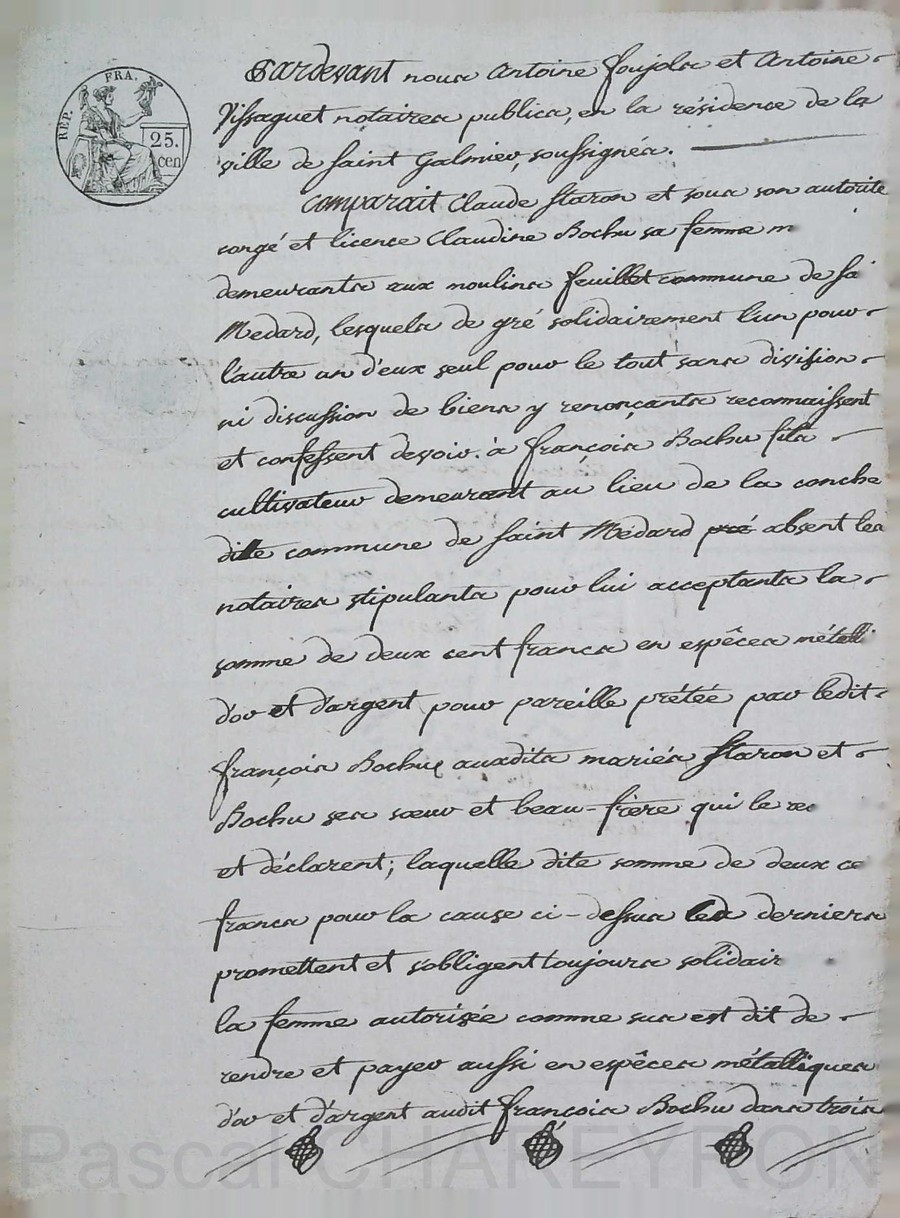 REP. FRA.
25.
cen
Pardevant nous Antoine Foujols et Antoine
Vissaguet notaires publics, en la résidence de la
ville de Saint Galmier, soussignés.
Comparait Claude Staron et sous son autorité
congé et licence Claudine Bochu sa femme m
demeurants aux moulins feuillet commune de
Medard, lesquels de gré solidairement l'un pour
l'autre un d'eux seul pour le tout sans division
ni discussion de biens y renonçants reconnaissent
et confessent devoir à françois Bochu fils
cultivateur demeurant au lieu de la conche
dite commune de Saint Médard absent les
notaires stipulants pour lui acceptants la
somme de deux cent francs en espêces métalli
d'or et d'argent pour pareille prétée par ledit
françois Bochu auxdits mariés Staron et
Bochu ses sœur et beau-frère qui le rec
et déclarent; laquelle dite somme de deux ce
francs pour la cause ci-dessus les derniers
promettent et s'obligent toujours solidair
la femme autorisée comme sus est dit de
rendre et payer aussi en espêces métalliques
d'or et d'argent audit françois Bochu dans trois
Pascal CHAREYRON